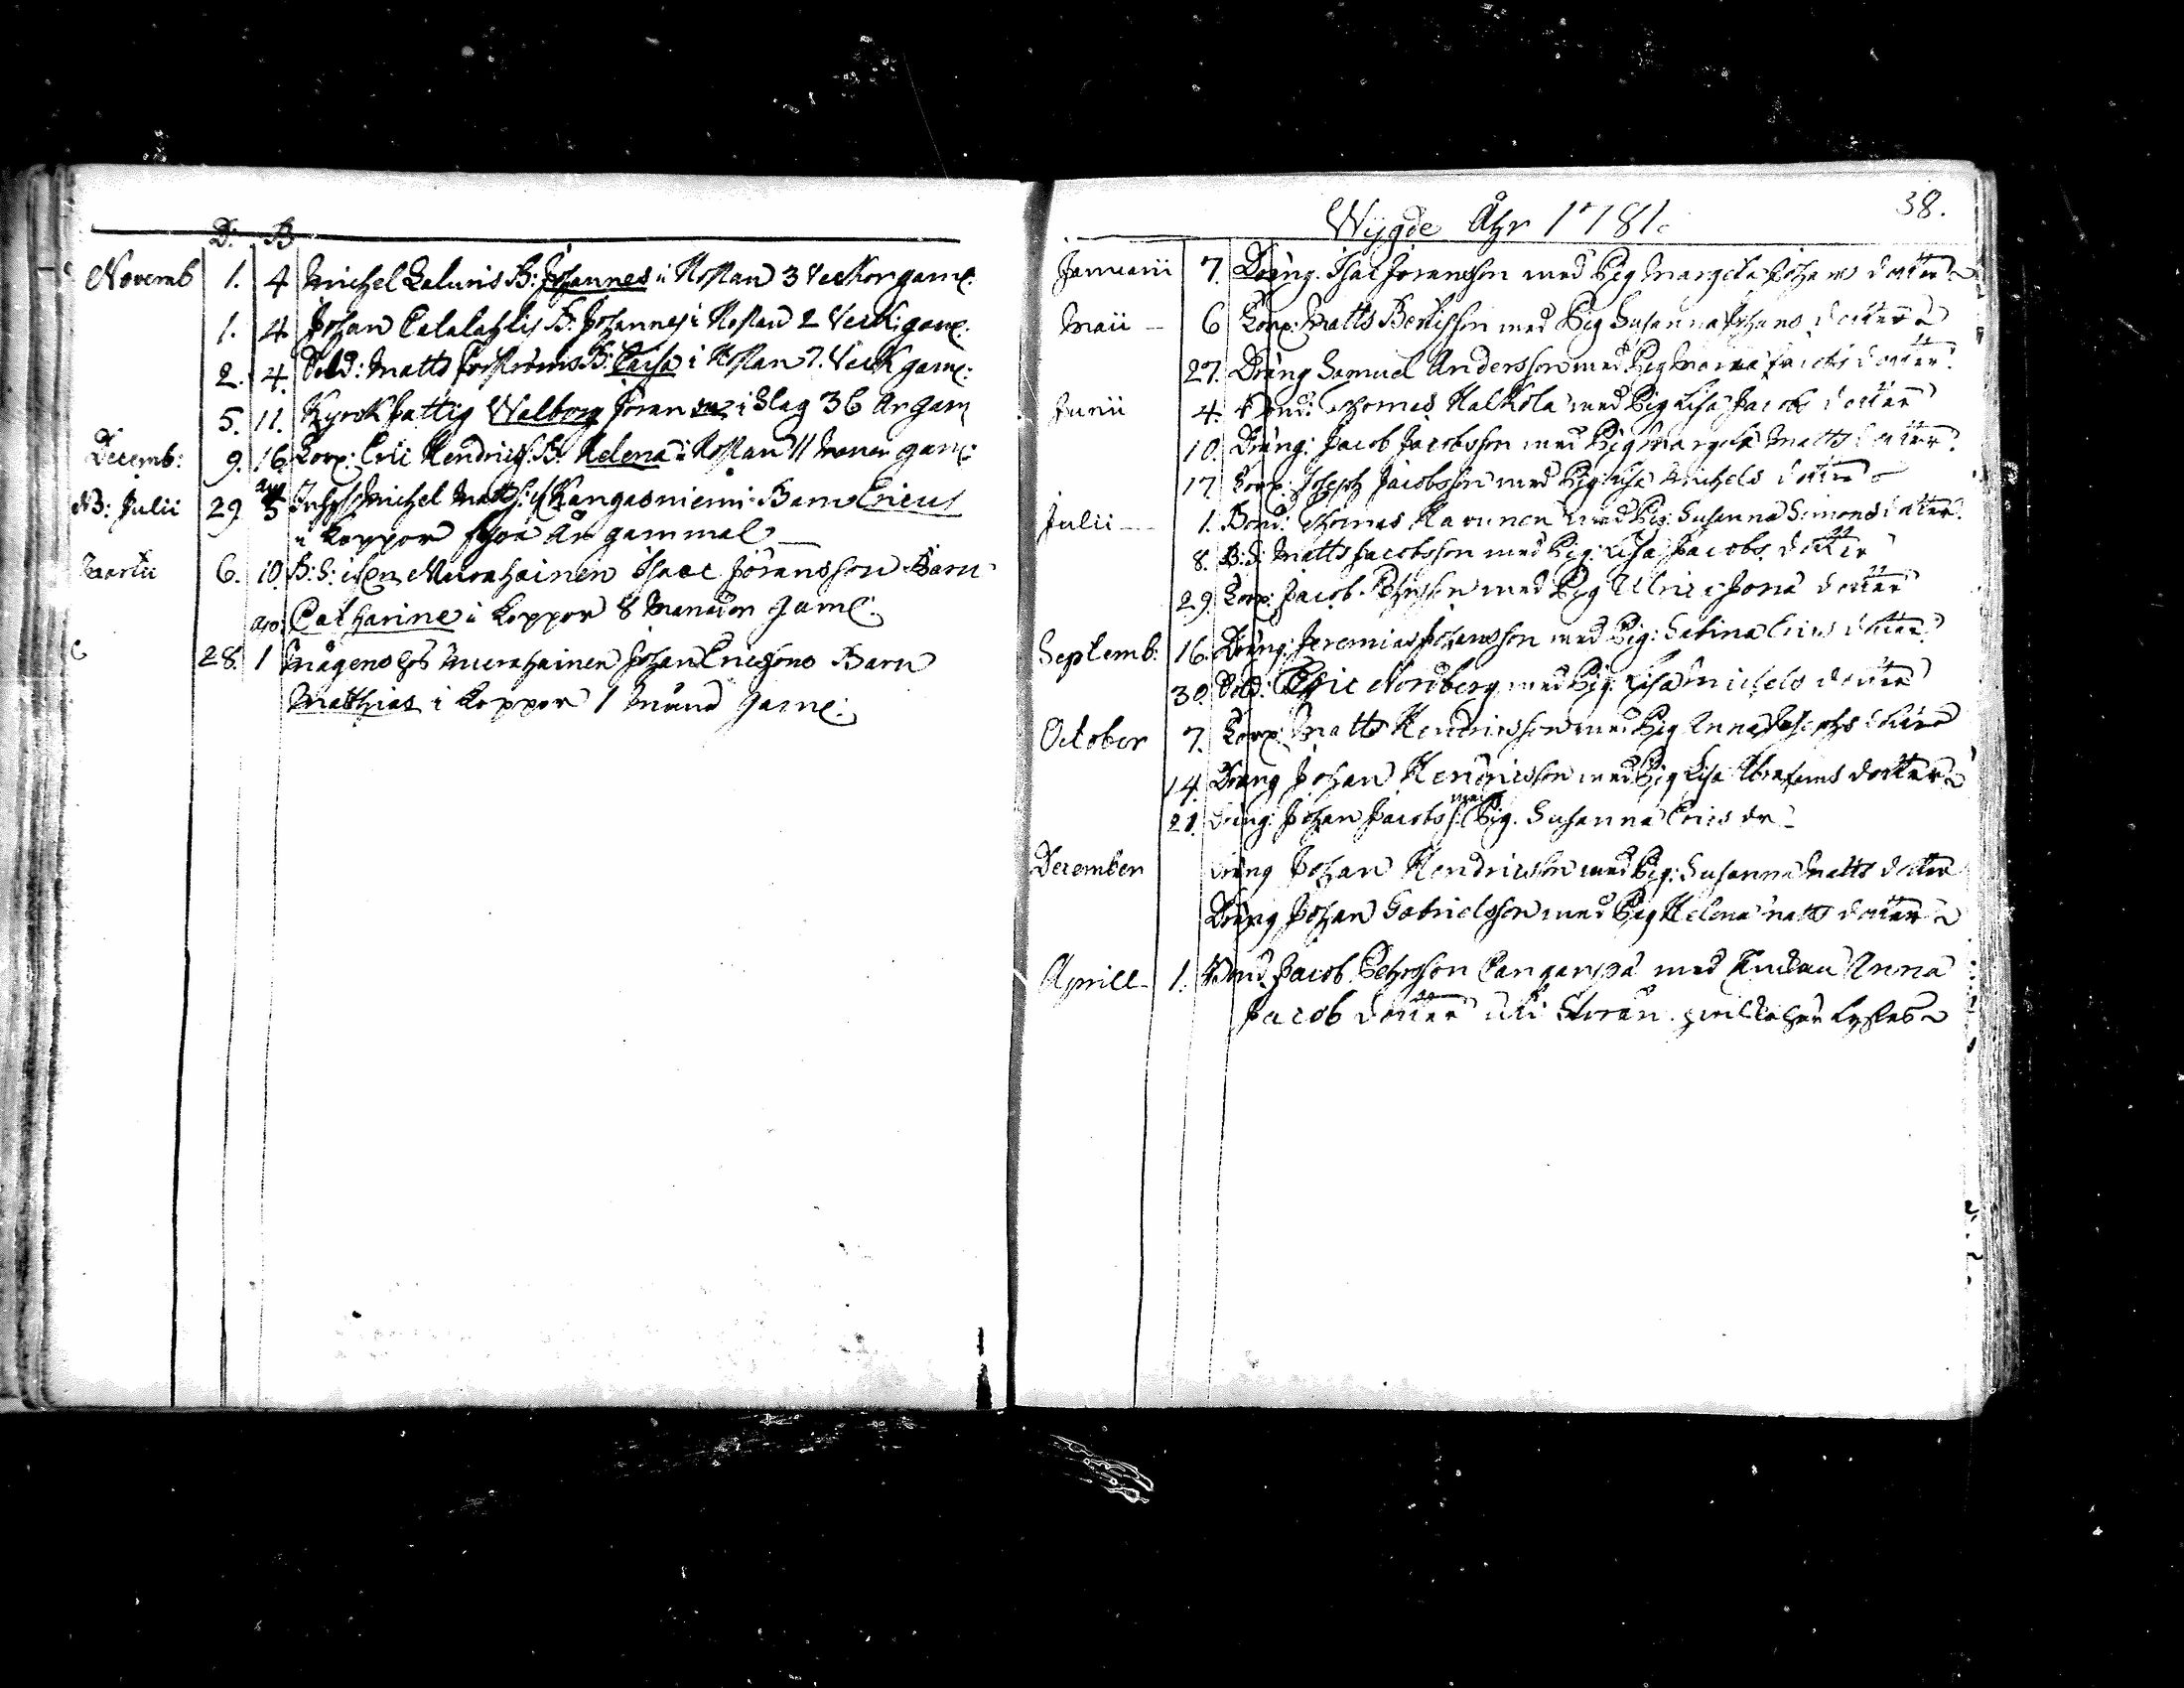 D: B
Novemb 1. 4 Michel Laluris B: Johannes i Hostan 3 Veckor gaml:
1. 4 Johan Calalahlis B: Johannes i Hostan 2 Veck: gaml:
2. 4. Sold: Matts B: Caisa i Hostan 7. Veck gaml:
5. 11. Kyrck fattig Walborg Jöran i Slag 36 År gam
Decemb: 9. 16 Korp: Eric Hendrics: B: Helena i Hostan 11 gaml:
NB: Julii 29 5 Michel Matts: Kangasniemi Barn Ericus
i Koppor År gammal
Martii 6. 10. B: S: Murahainen Isaac Jöransson Barn
Catharina i Koppor 8 Månader gaml:
28. 1 Mågens hos Murahainen Johan Ericsons Barn
Matthias i Koppor 1 Månad gaml:
38.
Wygde Åhr 1781.
Januarii 7. Dräng: Isac Jöransson med Pig Margeta Johans dotter
Maii 6 Korp: Matts Bertisson med Pig Susanna Johans dotter
27. Dräng Samuel Andersson med Pig Maria Jacobs dotter
Junii 4. Bond: Thomas Halkola med Pig Lisa Jacobs dotter
10. Dräng: Jacob Jacobsson med Pig Margeta Matts dotter
17. Korp: Joseph Jacobsson med Pig Lisa Michels dotter
Julii 1. Bond: Thomas Karunen med Pig: Susanna Simons dotter
8. B: S: Matts Jacobsson med Pig: Lisa Jacobs dotter
29. Korp: Jacob Pehrsson med Pig Ulrica dotter
Septemb: 16. Dräng: Jeremias Johansson med Pig: Sabina Erics dotter
30. Sold: Eric Nordberg med Pig: Lisa Michels dotter
October 7. Korp: Matts Hendricsson med Pig Anna Josephs dotter
14. Dräng Johan Hendricsson med Pig Lisa Abrahams dotter
21. Dräng: Johan Jacobss: med Pig. Susanna Erics dr
December Dräng Johan Hendricsson med Pig: Susanna Matts dotter
Dräng Johan Gabrielsson med Pig Helena Matts dotter
Aprill 1. Bond. Jacob Pehrsson med Enckan Anna
Jacob dotter